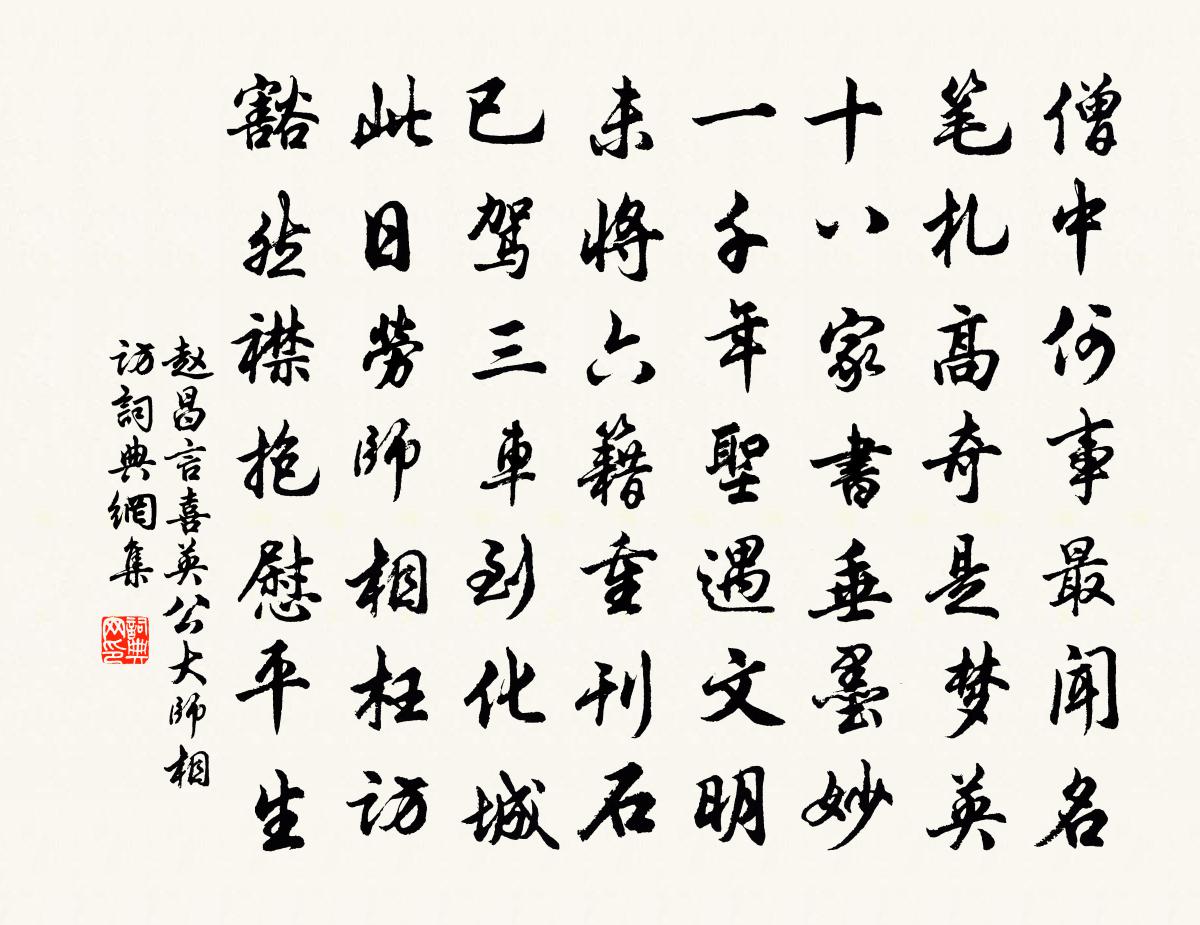 僧中何事最闻名
笔札高奇是梦英
十八家書垂墨妙
一千年聖遇文明
未將六籍重刊石
已驾三車到化城
此日劳師相枉访
豁然襟抱慰平生
赵昌言喜英公大师相
访詞典網集
詞典网印